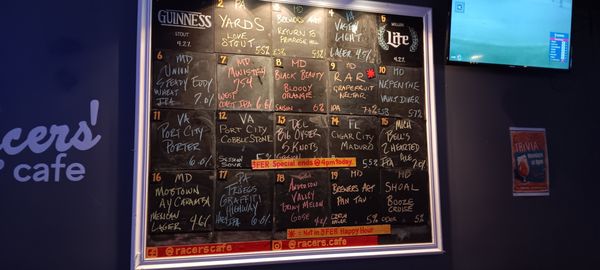 GUINNESS
STOUT
4.2%
2 PA
YARDS
LOVE
STOUT 5.5%
MD
BREWERS ART
RETURN TO
4 VA
VASEN
LIGHT
LAGER 4.5%
5
MILLER
Lite
4.2%
6 MD
UNION
STEADY EDDY
WHEAT
IPA 7.0%
7 MD
MINISTRY
754
WEST
COAST IPA 6.6%
8 MD
BLACK BEAUTY
BLOODY
ORANGE
SAISON 6%
9 MD
RAR
GRAPEFRUIT
NECTAR
IPA
10 MD
NEPENTHE
VAULT DIVER
11 VA
PORT CITY
PORTER
6.0%
12 VA
PORT CITY
COBBLESTONE
SESSION
SOUR
13 DEL
BIG OYSTER
5 KNOTS
14 FL
CIGAR CITY
MADURO
5.5%
15 MICH
BELL'S
2 HEARTED
ALE
IPA 7%
3FER Special ends @4pm Today
16 MD
MOBTOWN
AY CARAMBA
MEXICAN
LAGER 4.6%
17 PA
TROEGS
GRAFFITI
HIGHWAY
HAZY IPA 6.0%
18
ANDERSON
VALLEY
BRINY MELON
GOSE 4.2%
19 MD
BREWERS ART
5%
20 MD
SHOAL
BOOZE
CRUISE
5%
* = Not in 3FER Happy Hour
@racerscafe
@racers.cafe
acers'
cafe
TRIVIA